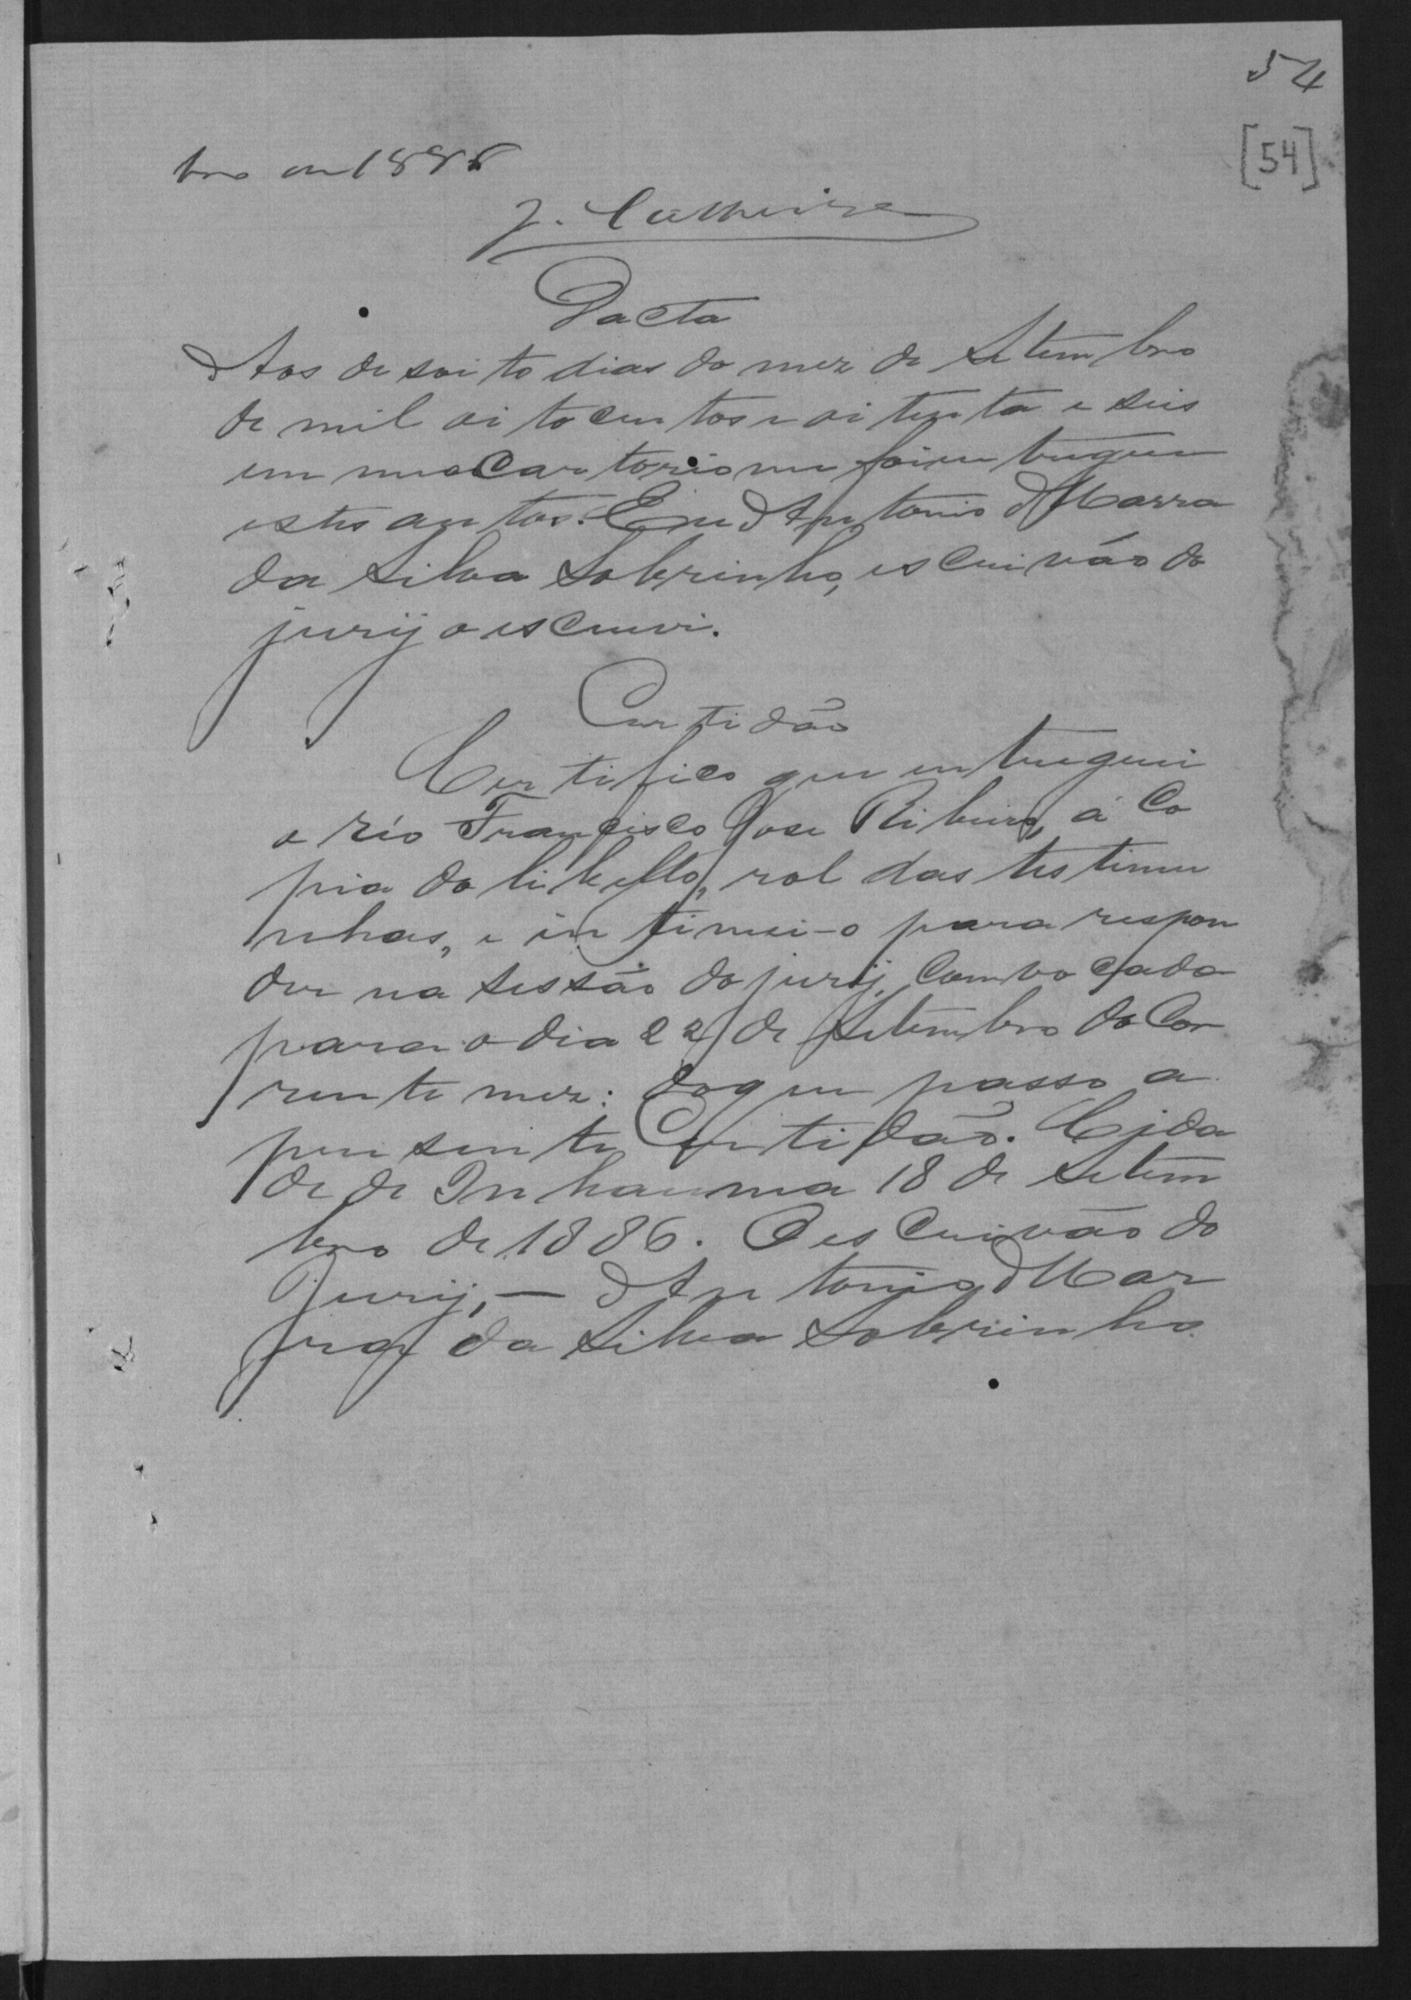 54
[54]
bro de 1886
J.
Dacta
Aos desoito dias do mez de Setembro
de mil oitocentos e oitenta e seis
em meo Cartorio me foi entregue
estes autos. Eu Antonio Marra
da Silva Sobrinho, escrivão do
jury o escrevi.
Certidão
Certifico que entreguei
o réo Francisco Jose Ribeiro, a Co
pia do libello, rol das testemu
nhas, e intimei-o para respon
der na sessão do jury, Comvocada
para o dia 22 de Setembro do Cor
rente mez: do que passo a
presente Certidão. Cida
de de Inhauma 18 de Setem
bro de 1886. O esCrivão do
Jury, — Antonio Mar
ra da Silva Sobrinho.